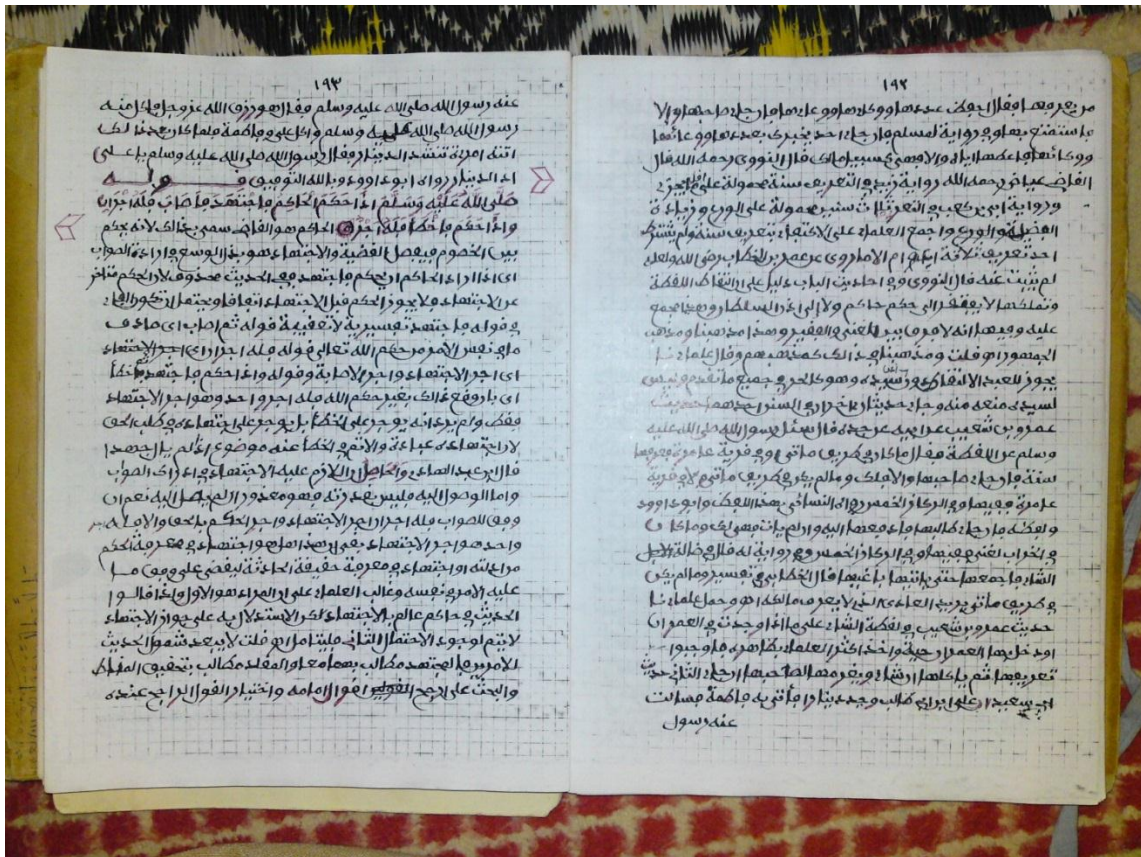 ١٩٢
من يعرفها فقال احفظ عددها ووكاءها ووعاءها فإن جاء صاحبها وإلا
فاستمتع بها وفي رواية لمسلم فإن جاء احد يخبرك بعددها ووعائها
ووكائها فاعطها اياه والا فهي كسبيل مالك قال النووي رحمه الله قال
القاضي عياض رحمه الله رواية زيد في التعريف سنة محمولة على اقل ما يجزئ
ورواية ابي بن كعب في التعريف ثلاث سنين محمولة على الورع وزيادة
الفضيلة والورع واجمع العلماء على الاكتفاء بتعريف سنة ولم يشترط
احد تعريف ثلاثة اعوام الا ما روي عن عمر بن الخطاب رضي الله ولعله
لم يثبت عنه قال النووي وفي احاديث الباب دليل على ان التقاط اللقطة
وتملكها لا يفتقر الى حكم حاكم ولا الى اذن السلطان وهذا مجمع
عليه وفيها انه لا فرق بين الغني والفقير وهذا مذهبنا ومذهب
الجمهور اهـ قلت ومذهبنا في ذالك كمذهبهم وقال علماءنا
يجوز للعبد الالتقاط دون اذن سيده وهو كالحر في جميع ما تقدم وليس
لسيده منعه منه وجاء حديثان اخران في السنن احدهما حديث
عمرو بن شعيب عن ابيه عن جده قال سئل رسول الله صلى الله عليه
وسلم عن اللقطة فقال ما كان في طريق مأتي وفي قرية عامرة فعرفها
سنة فإن جاء صاحبها والا فلك وما لم يكن في طريق مأتي ولا في قرية
عامرة ففيها وفي الركاز الخمس رواه النسائي بهذا اللفظ وابو داوود
ولفظه فإن جاء طالبها فادفعها اليه وان لم يات فهي لك وما كان
في الخراب يعني ففيها وفي الركاز الخمس وفي رواية له قال في ضالة
الشاء فاجمعها حتى ياتيها باغيها قال الخطابي في تفسير وما لم يكن
في طريق مأتي يريد العادي الذي لا يعرف مالكه اهـ وحمل علماءنا
حديث عمرو بن شعيب في لقطة الشاء على ما اذا وجدت في العمران
اودخل بها العمران حية واخذ اكثر العلماء بظاهره فاوجبوا
تعريفها ثم ياكلها ان شاء ويغرمها لصاحبها ان جاء الثاني حديث
ابي سعيد ان علي ابن ابي طالب وجد دينارا فأتى به فاطمة فسالت
عنه رسول
١٩٣
عنه رسول الله صلى الله عليه وسلم فقال هو رزق الله عز وجل فاكل منه
رسول الله صلى الله عليه وسلم واكل علي وفاطمة فلما كان بعد ذالك
اتته امرءة تنشد الدينار فقال رسول الله صلى الله عليه وسلم يا علي
اد الدينار رواه ابو داوود وبالله التوفيق قوله
صَلَّى اللهُ عَلَيْهِ وَسَلَّمَ اذا حَكَمَ الْحَاكِمُ فاجتهد فأصاب فله أجران
واذا حكم فأخطأ فله أجر الحاكم هو القاضي سمي بذالك لانه يحكم
بين الخصوم فيفصل القضية والاجتهاد هو بذل الوسع في ارادة الصواب
اي اذا اراد الحاكم ان يحكم فاجتهد ففي الحديث محذوف لان الحكم متاخر
عن الاجتهاد فلا يجوز الحكم قبل الاجتهاد اتفاقا ويحتمل ان تكون الفاء
في قوله فاجتهد تفسيرية لا تعقيبية قوله ثم اصاب اي صادف
ما في نفس الامر من حكم الله تعالى قوله فله اجران اي اجر الاجتهاد
اي اجر الاجتهاد واجر الاصابة وقوله واذا حكم فاجتهد فأخطأ
اي بان وقع ذالك بغير حكم الله فله اجر واحد وهو اجر الاجتهاد
فقط ولم يرد انه يوجر على الخطأ بل يوجر على اجتهاده في طلب الحق
لان اجتهاده عبادة والاثم في الخطأ عنه موضوع اذا لم يال جهدا
قال ابن عبد الهادي والحاصل ان اللازم عليه الاجتهاد في ادراك الصواب
واما الوصول اليه فليس بقدرته فهو معذور ان لم يصل اليه نعم ان
وفق للصواب فله اجران اجر الاجتهاد واجر الحاكم بالحق والا فله
واحد هو اجر الاجتهاد بقي ان هذا هل هو اجتهاد في معرفة الحكم
من ادلته او اجتهاد في معرفة حقيقة الحادثة ليقضي على وفق ما
عليه الامر في نفسه وغالب العلماء على ان المراد هو الاول ولذا قالوا
الحديث في حاكم عالم بالاجتهاد لكن الاستدلال به على جواز الاجتهاد
لا يتم لوجود الاحتمال الثاني فليتامل اهـ قلت لا يبعد شمول الحديث
الامرين فالمجتهد مطالب بهما معا والمقلد مطالب بتحقيق المناط
والبحث على ارجح القولين لقول امامه واختيار القول الراجح عنده